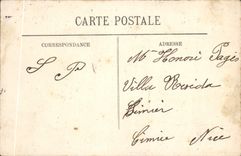 CARTE POSTALE
CORRESPONDANCE
ADRESSE
S P
Mme Honoré Pagès
Villa
Cimiez
Nice